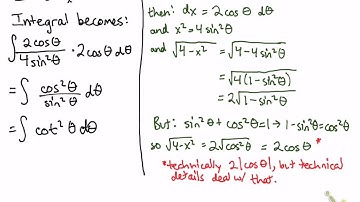 Integral becomes:
∫ 2cosθ / 4sin²θ · 2cosθ dθ
= ∫ cos²θ / sin²θ dθ
= ∫ cot²θ dθ
then: dx = 2cosθ dθ
and x² = 4sin²θ
and √4-x² = √4-4sin²θ
= √4(1-sin²θ)
= 2√1-sin²θ
But: sin²θ + cos²θ = 1 → 1-sin²θ = cos²θ
so √4-x² = 2√cos²θ = 2cosθ *
*technically 2|cosθ|, but technical
details deal w/ that.